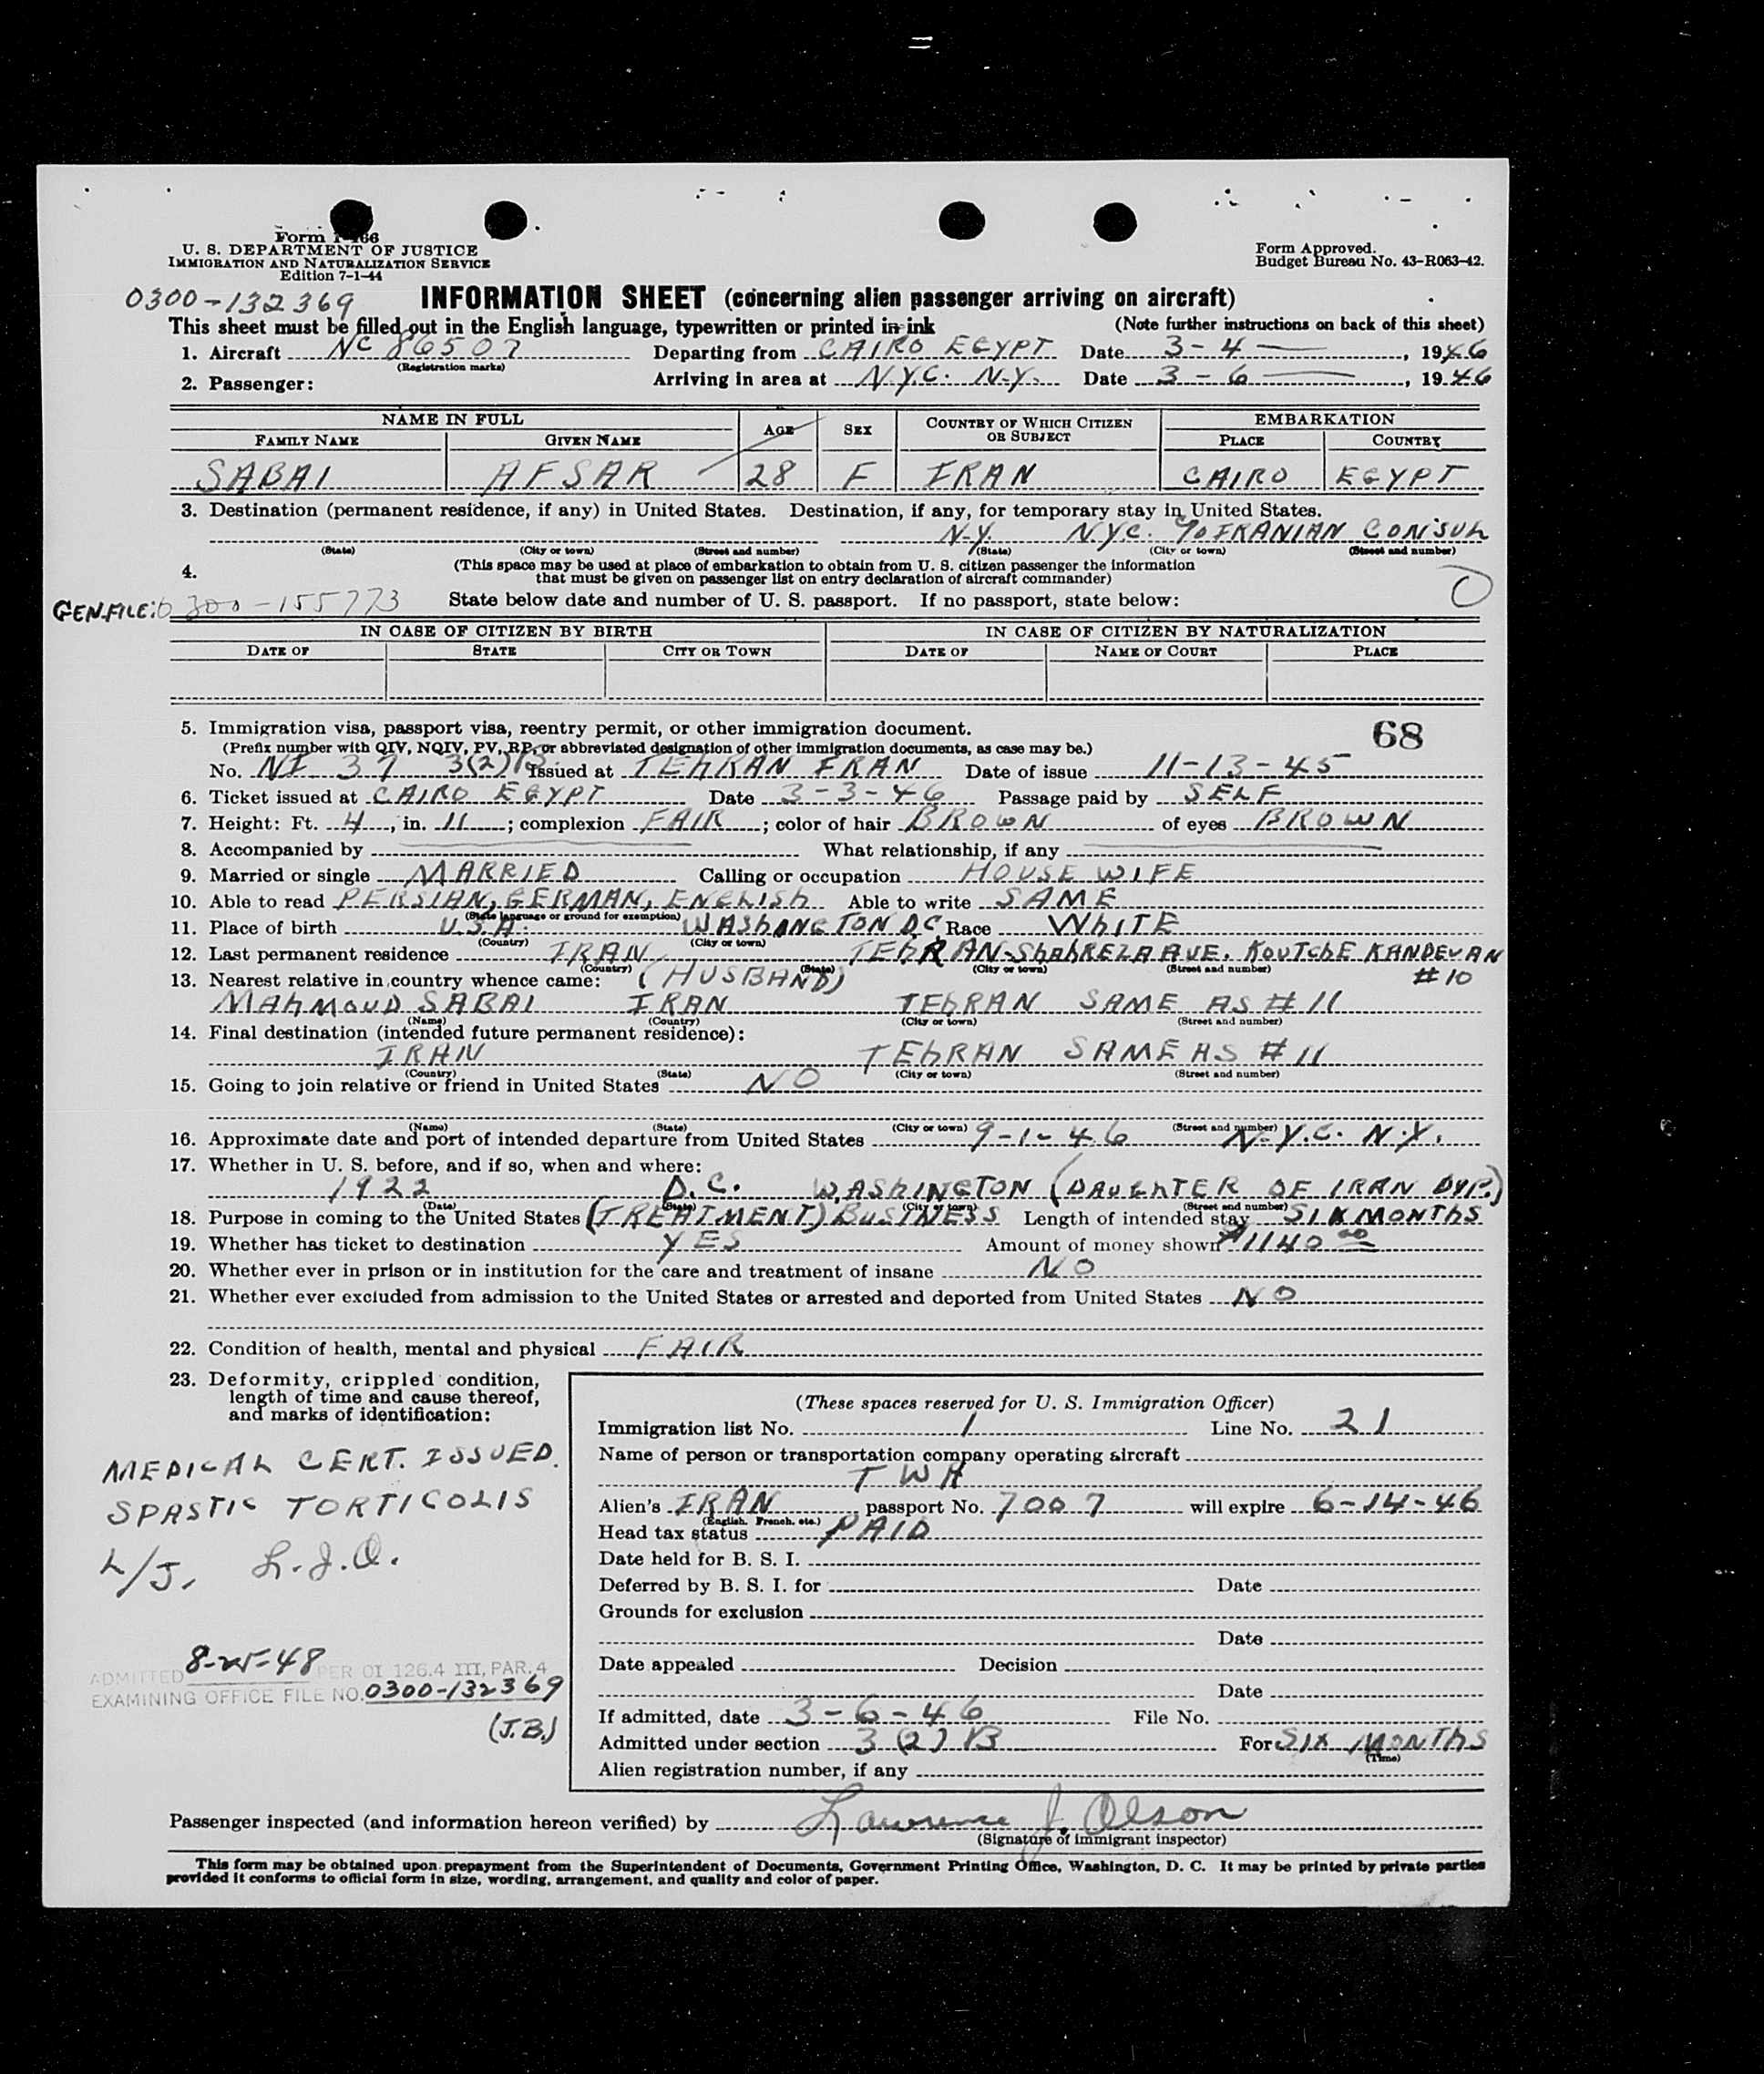 Form I-466
U. S. DEPARTMENT OF JUSTICE
IMMIGRATION AND NATURALIZATION SERVICE
Edition 7-1-44
Form Approved.
Budget Bureau No. 43-R063-42.
0300-132369
INFORMATION SHEET (concerning alien passenger arriving on aircraft)
This sheet must be filled out in the English language, typewritten or printed in ink (Note further instructions on back of this sheet)
1. Aircraft NC 86507 Departing from CAIRO EGYPT Date 3-4, 1946
(Registration marks)
2. Passenger: Arriving in area at N.Y.C. N.Y. Date 3-6, 1946
NAME IN FULL AGE SEX COUNTRY OF WHICH CITIZEN OR SUBJECT EMBARKATION
FAMILY NAME GIVEN NAME PLACE COUNTRY
SABAI AFSAR 28 F IRAN CAIRO EGYPT
3. Destination (permanent residence, if any) in United States. Destination, if any, for temporary stay in United States.
N.Y. N.Y.C. % IRANIAN CONSUL
(State) (City or town) (Street and number) (State) (City or town) (Street and number)
4. (This space may be used at place of embarkation to obtain from U. S. citizen passenger the information
that must be given on passenger list on entry declaration of aircraft commander)
GEN.FILE: 0300-155773 State below date and number of U. S. passport. If no passport, state below:
IN CASE OF CITIZEN BY BIRTH IN CASE OF CITIZEN BY NATURALIZATION
DATE OF STATE CITY OR TOWN DATE OF NAME OF COURT PLACE
5. Immigration visa, passport visa, reentry permit, or other immigration document. 68
(Prefix number with QIV, NQIV, PV, RP, or abbreviated designation of other immigration documents, as case may be.)
No. NI 37 3(2)B Issued at TEhRAN IRAN Date of issue 11-13-45
6. Ticket issued at CAIRO EGYPT Date 3-3-46 Passage paid by SELF
7. Height: Ft. 4, in. 11; complexion FAIR; color of hair BROWN of eyes BROWN
8. Accompanied by What relationship, if any
9. Married or single MARRIED Calling or occupation HOUSE WIFE
10. Able to read PERSIAN, GERMAN, ENGLISh Able to write SAME
(State language or ground for exemption)
11. Place of birth U.S.A. WAShINGTON D.C. Race WhITE
(Country) (City or town)
12. Last permanent residence IRAN TEhRAN-ShAhREZA AVE. KOUTChE KANDEVAN
(Country) (State) (City or town) (Street and number) #10
13. Nearest relative in country whence came: (HUSBAND)
MAhMOUD SABAI IRAN TEhRAN SAME AS #11
(Name) (Country) (City or town) (Street and number)
14. Final destination (intended future permanent residence):
IRAN TEhRAN SAME AS #11
(Country) (State) (City or town) (Street and number)
15. Going to join relative or friend in United States NO
(Name) (State) (City or town) (Street and number)
16. Approximate date and port of intended departure from United States 9-1-46 N.Y.C. N.Y.
17. Whether in U. S. before, and if so, when and where:
1922 D.C. WAShINGTON (DAUGhTER OF IRAN DYP.)
(Date) (State) (City or town) (Street and number)
18. Purpose in coming to the United States (TREATMENT) BUSINESS Length of intended stay SIX MONThS
19. Whether has ticket to destination YES Amount of money shown $1140.00
20. Whether ever in prison or in institution for the care and treatment of insane NO
21. Whether ever excluded from admission to the United States or arrested and deported from United States NO
22. Condition of health, mental and physical FAIR
23. Deformity, crippled condition,
length of time and cause thereof,
and marks of identification:
MEDICAL CERT. ISSUED.
SPASTIC TORTICOLIS
L/J. L.J.O.
ADMITTED 8-25-48 PER OI 126.4 III, PAR. 4
EXAMINING OFFICE FILE NO. 0300-132369
(J.B.)
(These spaces reserved for U. S. Immigration Officer)
Immigration list No. 1 Line No. 21
Name of person or transportation company operating aircraft
TWA
Alien's IRAN passport No. 7007 will expire 6-14-46
(English, French, etc.)
Head tax status PAID
Date held for B. S. I.
Deferred by B. S. I. for Date
Grounds for exclusion
Date
Date appealed Decision
Date
If admitted, date 3-6-46 File No.
Admitted under section 3(2)B For SIX MONThS
(Time)
Alien registration number, if any
Passenger inspected (and information hereon verified) by Lawrence J. Olson
(Signature of immigrant inspector)
This form may be obtained upon prepayment from the Superintendent of Documents, Government Printing Office, Washington, D. C. It may be printed by private parties
provided it conforms to official form in size, wording, arrangement, and quality and color of paper.